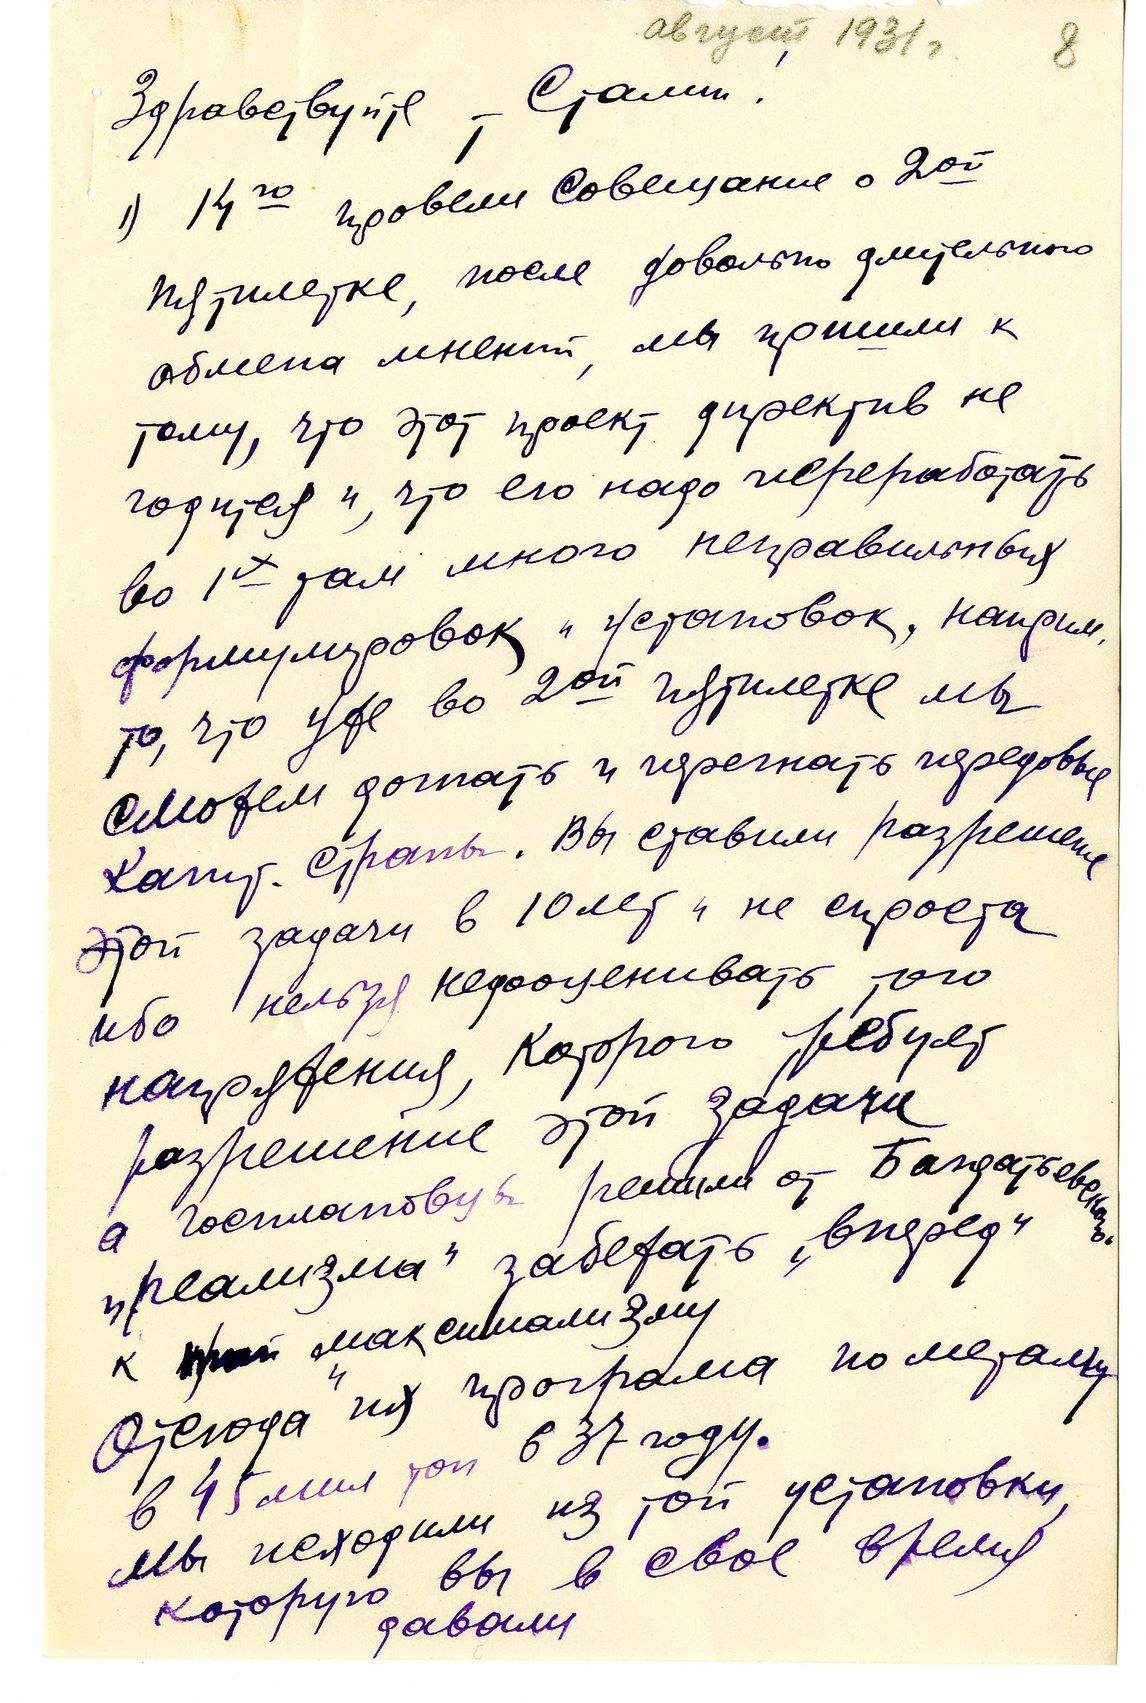 август 1931 г. 8
Здравствуйте т Сталин!
1) 14го провели Совещание о 2ой
пятилетке, после довольно длительного
обмена мнений, мы пришли к
тому, что этот проект директив не
годится и, что его надо переработать
во 1х там много неправильных
формулировок и установок, наприм.
то, что уже во 2ой пятилетке мы
сможем догнать и перегнать передовые
капит. страны. Вы ставили разрешение
этой задачи в 10 лет и не спроста
ибо нельзя недооценивать того
напряжения, которого требует
разрешение этой задачи
а госплановцы решили от
"реализма" забежать "вперед"
к максимализму
Отсюда и их програма по металлу
в 45 мил тон в 37 году.
Мы исходили из той установки,
которую вы в свое время
давали